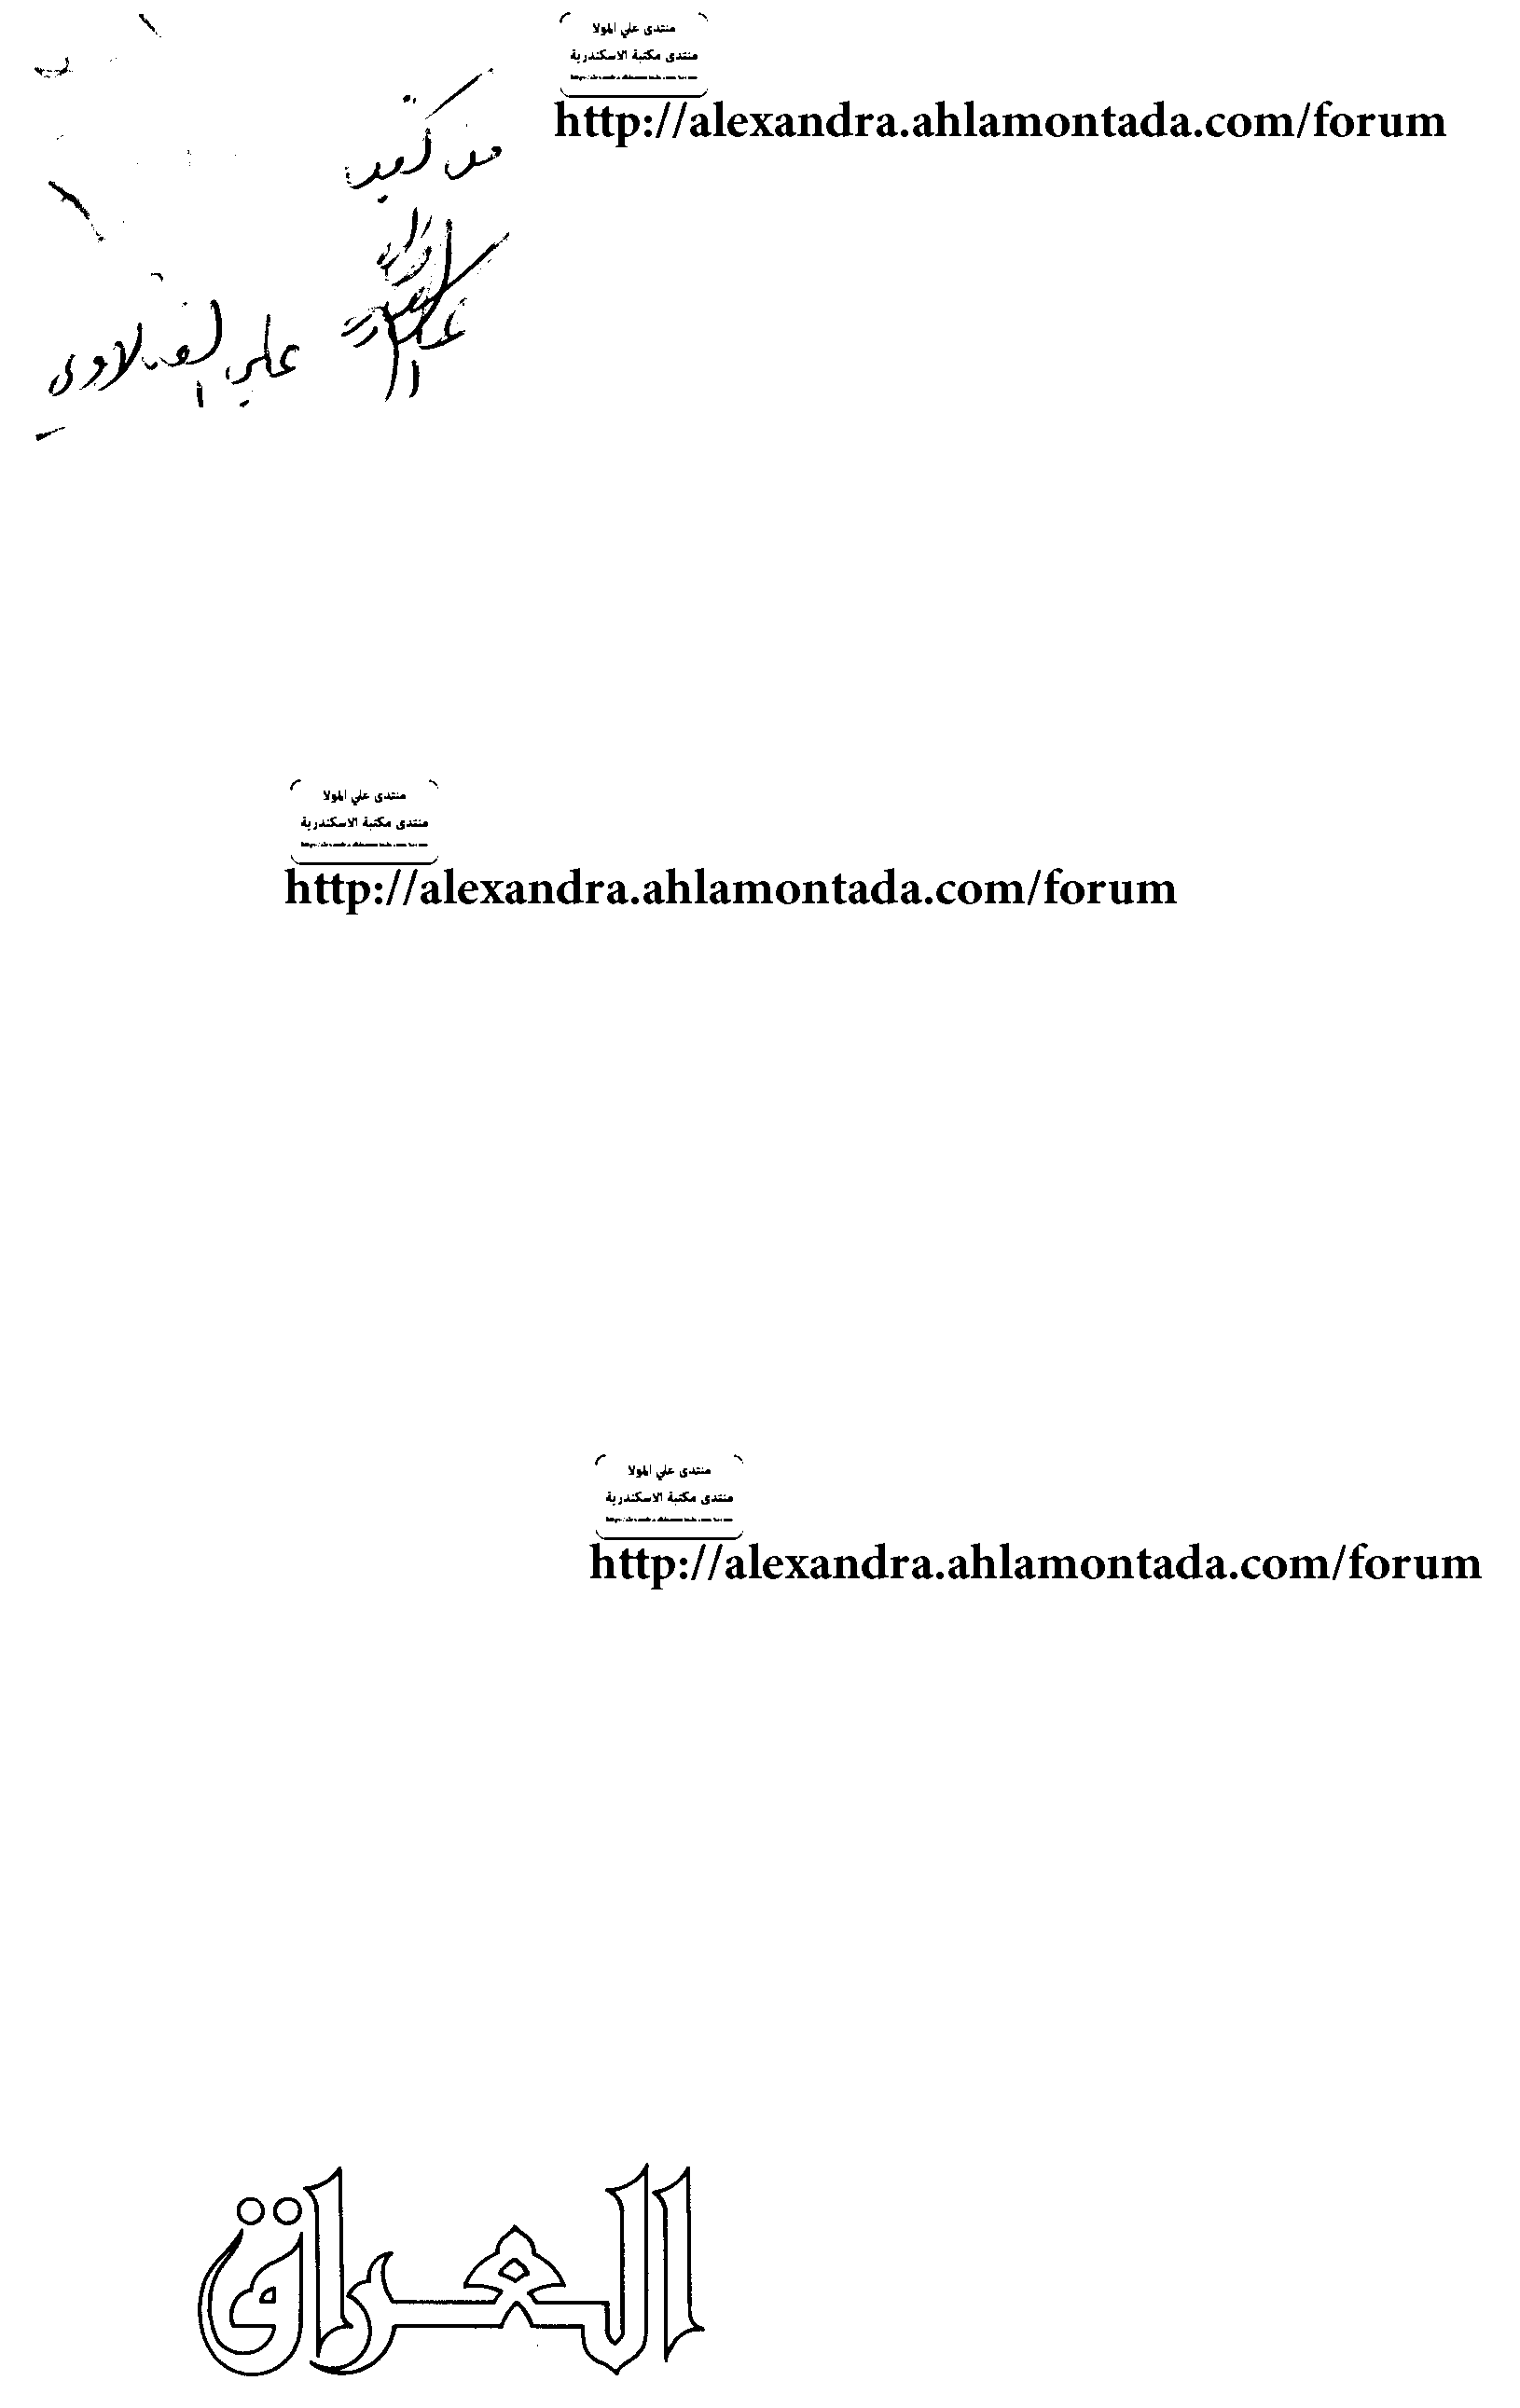 منتدى علي المولا
منتدى مكتبة الاسكندرية
http://alexandra.ahlamontada.com/forum
من كتب
علي
منتدى علي المولا
منتدى مكتبة الاسكندرية
http://alexandra.ahlamontada.com/forum
منتدى علي المولا
منتدى مكتبة الاسكندرية
http://alexandra.ahlamontada.com/forum
العراق